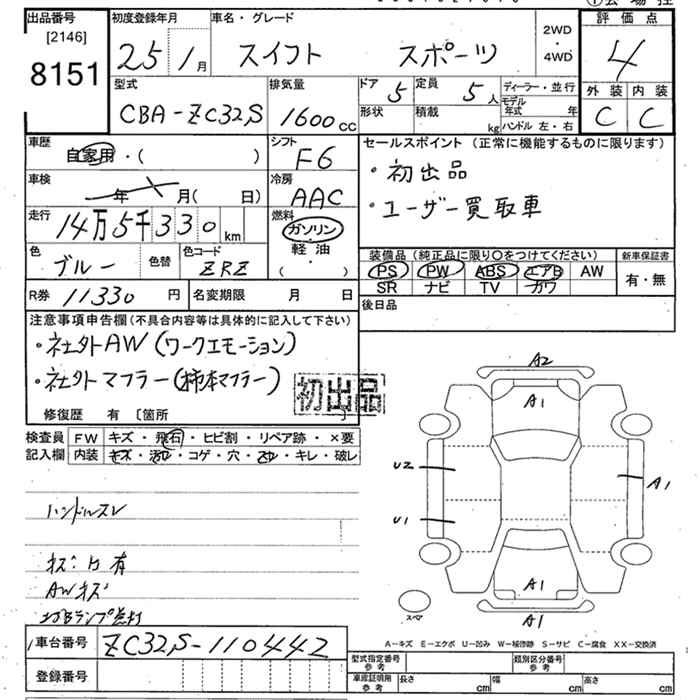 出品番号 初度登録年月 車名・グレード 2WD・4WD 評価点
[2146]
8151 25 1月 スイフト スポーツ 4
型式 排気量 ドア 5 定員 5人 ディーラー・並行 外装 内装
CBA-ZC32S 1600cc 形状 積載 kg モデル年式 年 C C
ハンドル 左・右
車歴 シフト セールスポイント (正常に機能するものに限ります)
自家用・( ) F6 ・初出品
車検 年 月( 日) 冷房 AAC ・ユーザー買取車
走行 14万5千330km 燃料 ガソリン・軽油・( )
色 ブルー 色替 色コード ZRZ
装備品(純正品に限り〇をつけてください) 新車保証書
PS PW ABS エアB AW 有・無
SR ナビ TV カワ
R券 11330円 名変期限 月 日 後日品
注意事項申告欄(不具合内容等は具体的に記入して下さい)
・社外AW(ワークエモーション)
・社外マフラー(柿本マフラー)
初出品
修復歴 有 〔箇所
検査員 FW キズ・飛石・ヒビ割・リペア跡・×要
記入欄 内装 キズ・汚れ・コゲ・穴・スレ・キレ・破レ
ハンドルスレ
AWキズ
A2
A1
U2
A1
U1
A1
A1
スペア
A-キズ E-エクボ U-凹み W-補修跡 S-サビ C-腐食 XX-交換済
車台番号 ZC32S-110442
登録番号
型式指定番号参考 類別区分番号参考
車庫証明用参考 長さ cm 幅 cm 高さ cm